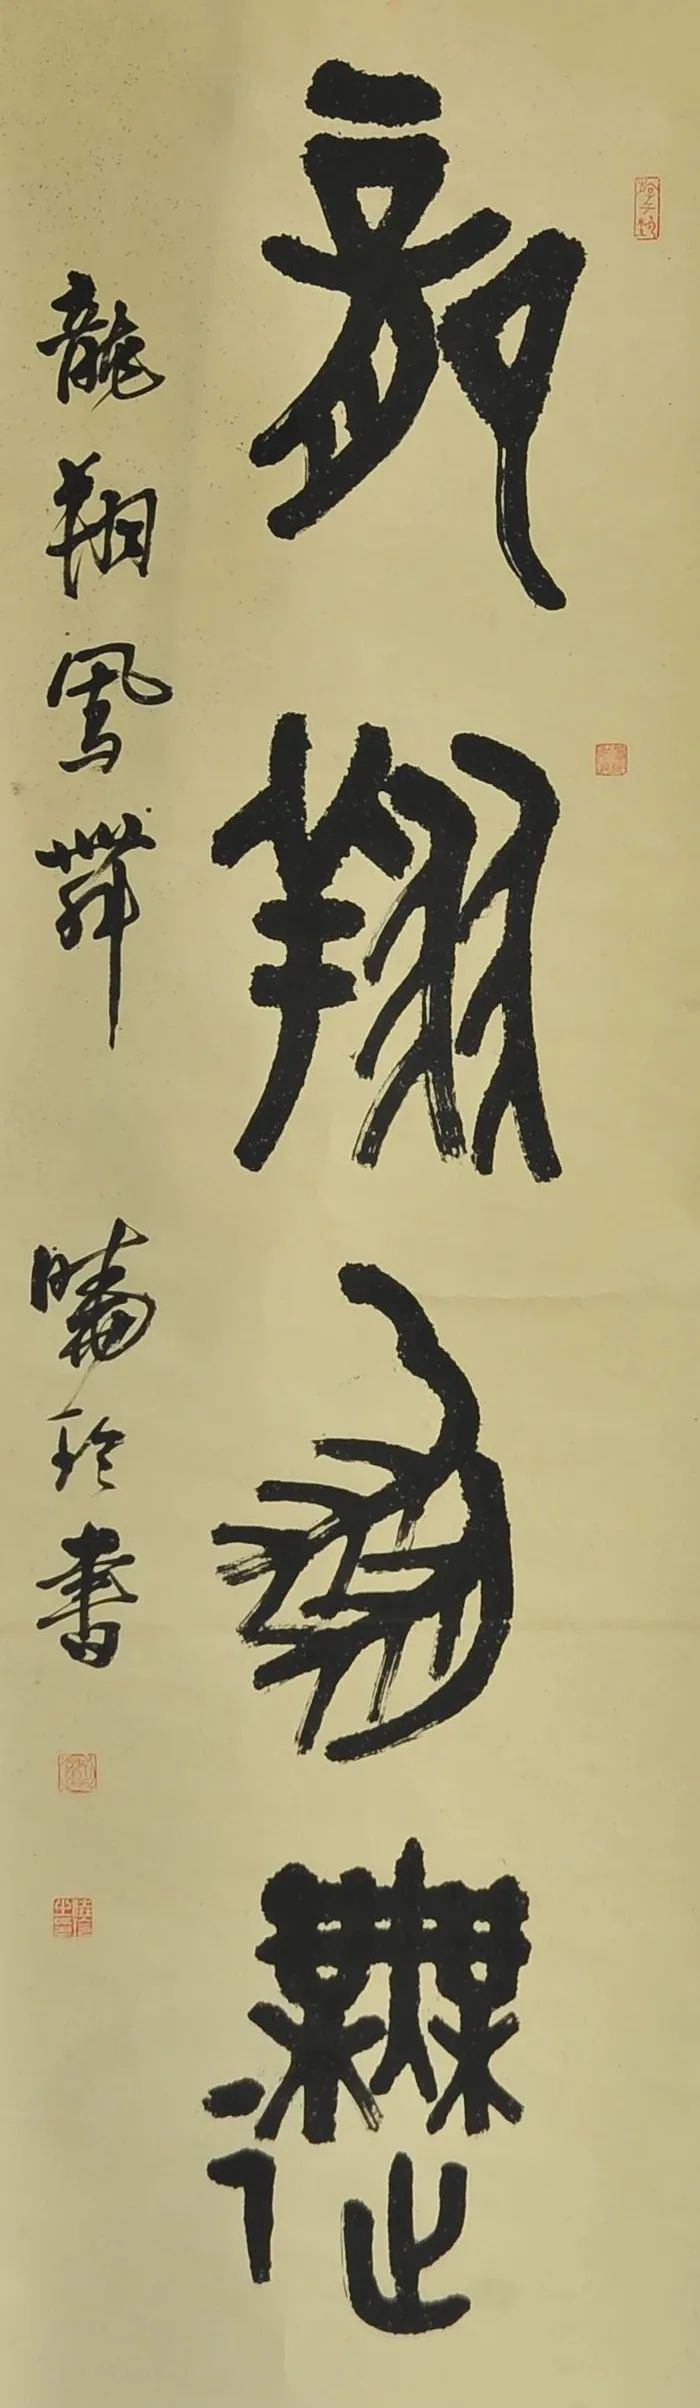 龍翔鳳舞
龍翔鳳舞 玲書